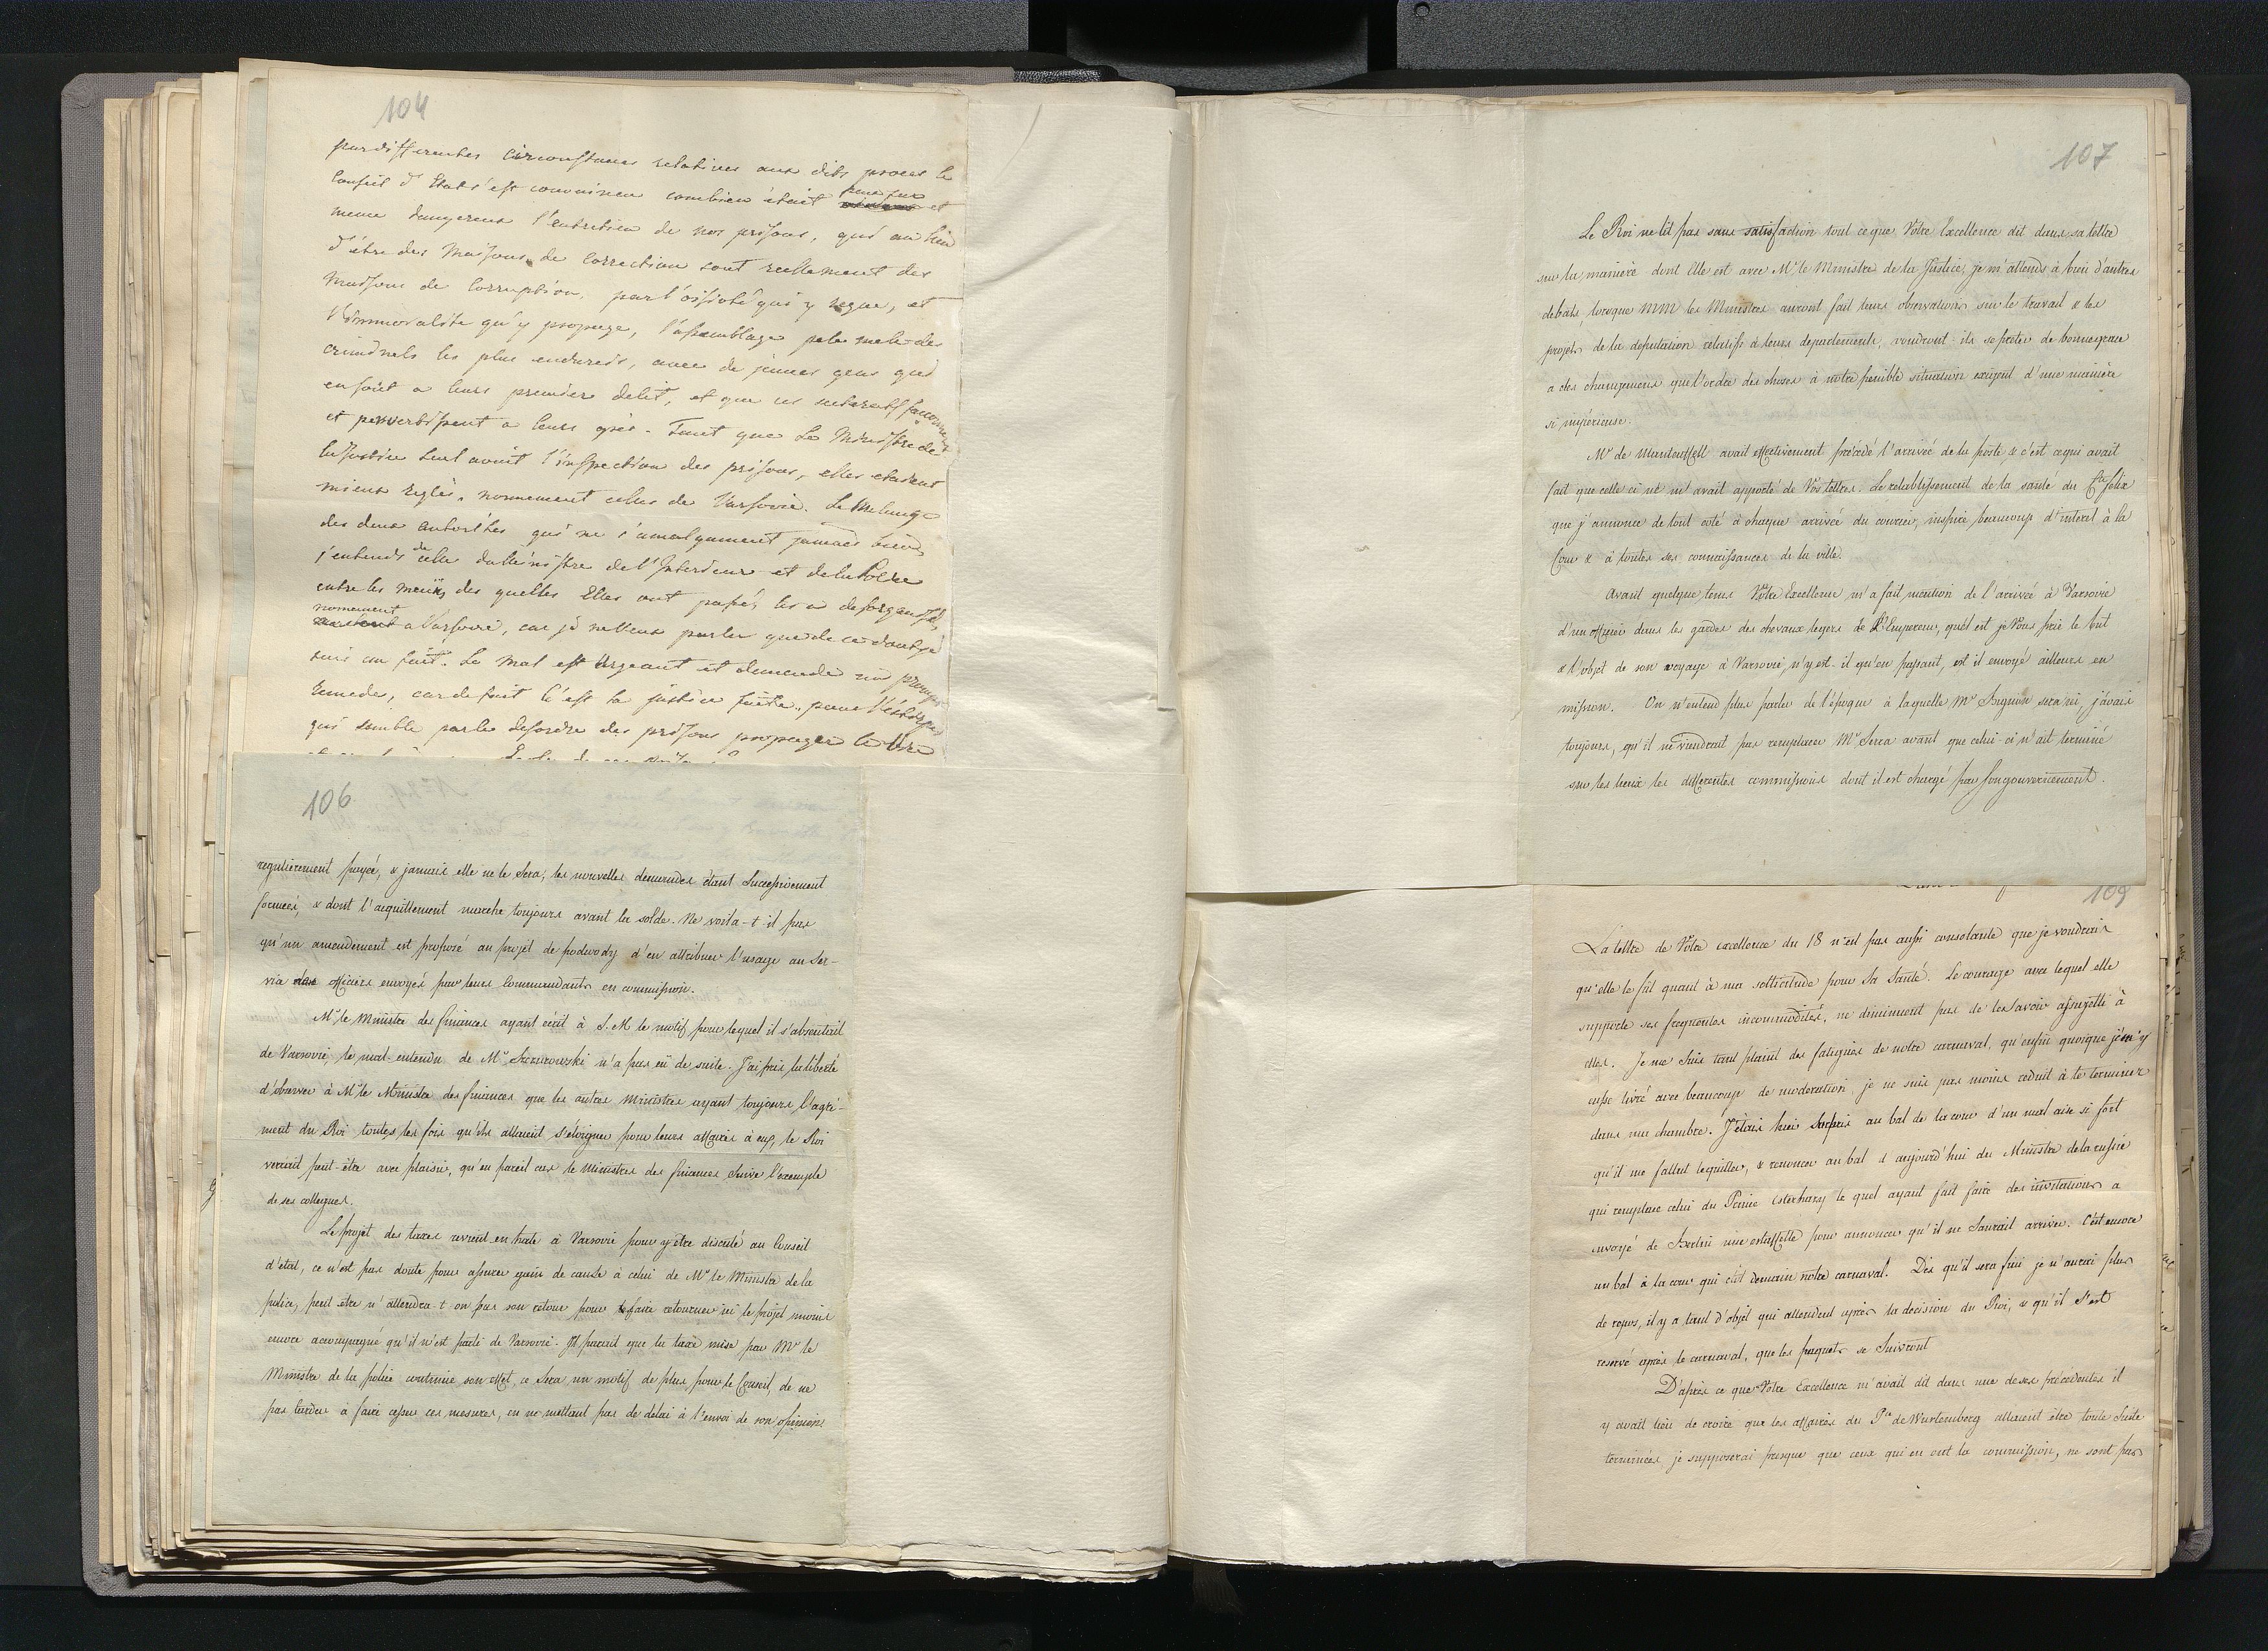 104
par differentes circonstances relatives aux dits proces le
Conseil d'Etat s'est convaincu combien était peu sur et
meme dangereux l'entretien de nos prisons, qui au lieu
d'être des Maisons de Correction sont reellement des
maisons de Corruption, par l'oisiveté qui y regne, et
l'immoralité qu'y propage, l'assemblage pele mele des
criminels les plus endurcis, avec de jeunes gens qui
en sont a leurs premiers delit, et que ces
et pervertissent a leurs gré. Tant que Le Ministre de
la Justice seul avait l'inspection des prisons, elles etaient
mieux reglés, nommement celles de Varsovie. Le Melange
des deux autorités qui ne s'amalgament jamais bien,
j'entends de celle du Ministre de l'Interieur et de la Police
entre les mains des quelles Elles ont passés, les a desorganisés,
nommement a Varsovie, car je ne veux parler que de ce dont je
suis au fait. Le mal est urgeant et demande un prompt
remede, car de fait c'est la justice faite pour
qui semble par le desordre des prisons propager le
106
regulièrement payée, & jamais elle ne le sera, les nouvelles demandes étant successivement
formées, & dont l'acquittement marche toujours avant la solde. Ne voila-t-il pas
qu'un amendement est proposé au projet de podwody d'en attribuer l'usage au ser-
vice des officiers envoyés par leurs Commandants en commission.
Mr. le Ministre des finances ayant écrit à S. M. le motif pour lequel il s'absentait
de Varsovie, le mal-entendu de Mr. Szczurowski n'a pas eü de suite. J'ai pris la liberté
d'observer à Mr. le Ministre des finances que les autres Ministres ayant toujours l'agré-
ment du Roi toutes les fois qu'ils allaient s'éloigner pour leurs affaires à eux, le Roi
verrait peut-être avec plaisir, qu'en pareil cas le Ministre des finances suive l'exemple
de ses collegues.
Le projet des taxes revient en hate à Varsovie pour y être discuté au Conseil
d'état, ce n'est pas doute pour assurer gain de cause à celui de Mr. le Ministre de la
police, peut être n'attendra-t-on pas son retour pour faire retourner ici le projet moins
encore accompagné qu'il n'est parti de Varsovie. Il parait que la taxe mise par Mr. le
Ministre de la police continue son effet, ce sera un motif de plus pour le Conseil, de ne
pas tarder à faire cesser ces mesures, en ne mettant pas de delai à l'envoi de son opinion.
107
Le Roi ne lit pas sans satisfaction tout ce que Votre Excellence dit dans sa lettre
sur la manière dont Elle est avec Mr. le Ministre de la Justice, je m'attends à bien d'autres
debats, lorsque MM les Ministres auront fait leurs observations sur le travail & les
projets de la deputation relatifs à leurs departements, voudront-ils se preter de bonne grace
a des changemens que l'ordre des choses à notre penible situation exigent d'une manière
si impérieuse.
Mr. de Manteuffell avait effectivement précédé l'arrivée de la poste & c'est ce qui avait
fait que celle ci ne m'avait apporté de Vos lettres. Le retablissement de la santé du Cte. felix
que j'annonce de tout coté à chaque arrivée du courier, inspire beaucoup d'interet à la
Cour & à toutes ses connaissances de la ville.
Avant quelque tems Votre Excellence m'a fait mention de l'arrivée à Varsovie
d'un officier dans les gardes des chevaux legers de l'Empereur, quel est je Vous prie le but
& l'objet de son voyage à Varsovie, n'y est-il qu'en passant, est il envoyé ailleurs en
mission. On n'entend plus parler de l'époque à laquelle Mr. Bignon sera ici, j'avais
toujours, qu'il ne viendrait pas remplacer Mr. Serra avant que celui-ci n'ait terminé
sur les lieux les differentes commissions dont il est chargé par son gouvernement.
109
La lettre de Votre excellence du 18 n'est pas aussi consolante que je voudrais
qu'elle le fut quant à ma sollicitude pour Sa Santé. Le courage avec lequel elle
supporte ses frequentes incommodités, ne diminuent pas de les savoir assujetti à
elles. Je me suis tant plaint des fatigues de notre carnaval, qu'enfin quoique je m'y
eusse livré avec beaucoup de moderation, je ne suis pas moins reduit à le terminer
dans ma chambre. J'étais hier surpris au bal de la cour d'un mal aise si fort
qu'il me fallut le quitter, & renoncer au bal d'aujourd'hui du Ministre de la russie
qui remplace celui du Prince Esterhazy le quel ayant fait faire des invitations a
envoyé de Berlin une estaffette pour annoncer qu'il ne saurait arriver. C'est encore
un bal à la cour qui clôt demain notre carnaval. Dès qu'il sera fini je n'aurai plus
de repos, il y a tant d'objet qui attendent après la decision du Roi, & qu'il s'est
reservé après le carnaval, que les paquets se suivront
D'après ce que Votre Excellence m'avait dit dans une de ses précédentes il
y avait lieu de croire que les affaires du Pce de Wurtemberg allaient être toute suite
terminées, je supposerai presque que ceux qui en ont la commission, ne sont pas